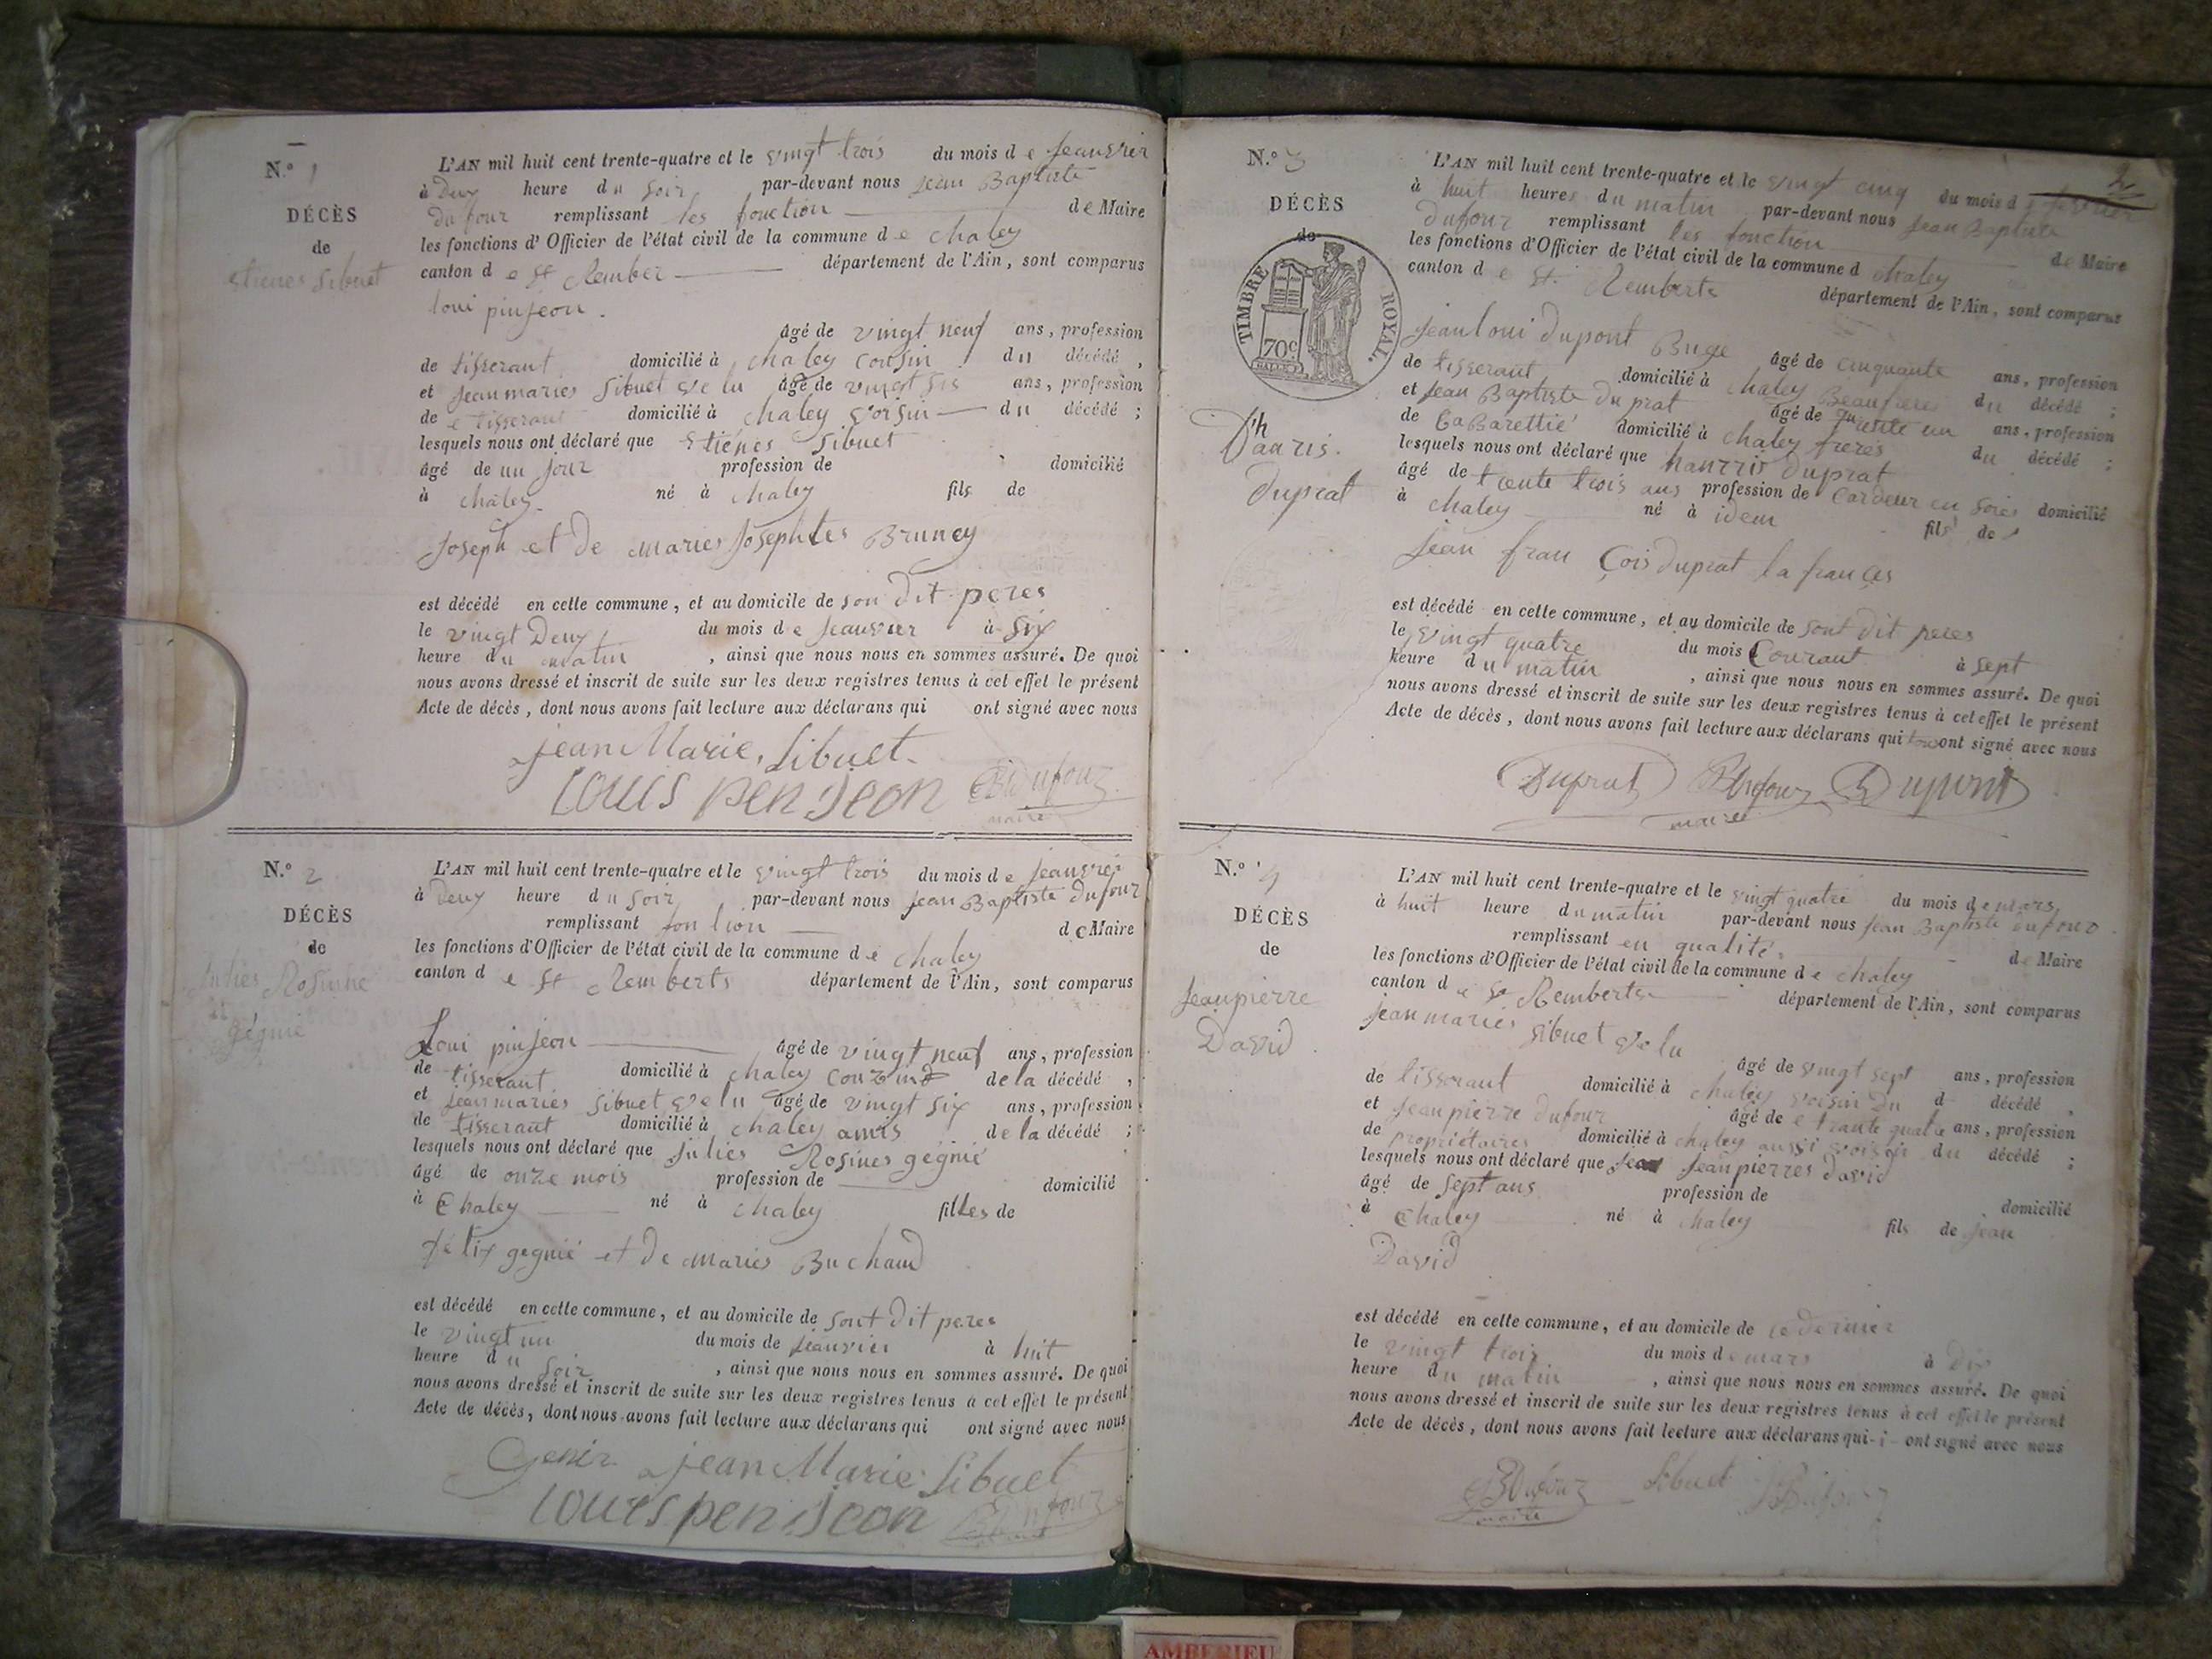 N.º 1
DÉCÈS
de
etienes Sibuet
L'AN mil huit cent trente-quatre et le vingt trois du mois de Jeanvier
à Deux heure du Soir par-devant nous jean Baptiste
Dufour remplissant les fonction de Maire
les fonctions d'Officier de l'état civil de la commune de chaley
canton de St Rember département de l'Ain, sont comparus
loui pinjeon
âgé de vingt neuf ans, profession
de tisserant domicilié à chaley cousin du décédé,
et jeanmaries Sibuet velu âgé de vingt six ans, profession
de tisserant domicilié à chaley voisin du décédé;
lesquels nous ont déclaré que Etienes Sibuet
âgé de un jour profession de domicilié
à chaley né à chaley fils de
Joseph et de maries Josephtes Bruney
est décédé en cette commune, et au domicile de son dit peres
le vingt Deux du mois de Jeanvier à Six
heure du matin, ainsi que nous nous en sommes assuré. De quoi
nous avons dressé et inscrit de suite sur les deux registres tenus à cet effet le présent
Acte de décès, dont nous avons fait lecture aux déclarans qui ont signé avec nous
jean Marie Sibuet
Louis penjeon Dufour
maire
N.º 2
DÉCÈS
de
Julies Rosinne
gégnié
L'AN mil huit cent trente-quatre et le vingt trois du mois de jeanvier
à Deux heure du Soir par-devant nous jean Baptiste Dufour
remplissant de Maire
les fonctions d'Officier de l'état civil de la commune de chaley
canton de St Remberts département de l'Ain, sont comparus
Loui pinjeon âgé de vingt neuf ans, profession
de tisserant domicilié à chaley de la décédé,
et jeanmaries Sibuet velu âgé de vingt six ans, profession
de tisserant domicilié à chaley amis de la décédé;
lesquels nous ont déclaré que Julies Rosines gégnié
âgé de onze mois profession de domicilié
à Chaley né à chaley filles de
félix gegnié et de maries Buchaud
est décédé en cette commune, et au domicile de sont dit peres
le vingt un du mois de jeanvier à huit
heure du Soir, ainsi que nous nous en sommes assuré. De quoi
nous avons dressé et inscrit de suite sur les deux registres tenus à cet effet le présent
Acte de décès, dont nous avons fait lecture aux déclarans qui ont signé avec nous
jean Marie Sibuet
Louis penjeon Dufour
2
N.º 3
DÉCÈS
de
TIMBRE ROYAL.
70c
Duprat
L'AN mil huit cent trente-quatre et le vingt cinq du mois de fevrier
à huit heures du matin par-devant nous Jean Baptiste
Dufour remplissant les fonction de Maire
les fonctions d'Officier de l'état civil de la commune d chaley
canton de St. Remberts département de l'Ain, sont comparus
jeanloui dupont Buge âgé de cinquante ans, profession
de tisserant domicilié à chaley Beaufrere du décédé;
et jean Baptiste duprat âgé de ans, profession
de CaBarettié domicilié à chaley freres du décédé;
lesquels nous ont déclaré que duprat
âgé de trente trois ans profession de Cardeur en Soies domicilié
à chaley né à idem fils de
jean fran Çois duprat la françes
est décédé en cette commune, et au domicile de sont dit peres
le vingt quatre du mois Courant à sept
heure du matin, ainsi que nous nous en sommes assuré. De quoi
nous avons dressé et inscrit de suite sur les deux registres tenus à cet effet le présent
Acte de décès, dont nous avons fait lecture aux déclarans qui ont signé avec nous
Duprat Dufour Dupont
maire
N.º 4
DÉCÈS
de
Jeanpierre
David
L'AN mil huit cent trente-quatre et le vingt quatre du mois de mars
à huit heure du matin par-devant nous jean Baptiste Dufour
remplissant en qualité de Maire
les fonctions d'Officier de l'état civil de la commune de chaley
canton de St Remberts département de l'Ain, sont comparus
jeanmaries Sibuet velu
âgé de vingt sept ans, profession
de tisserant domicilié à chaley voisin du d décédé,
et jeanpierre dufour âgé de trante quatre ans, profession
de propriétaires domicilié à chaley aussi voisin du décédé;
lesquels nous ont déclaré que jeanpierres david
âgé de sept ans profession de domicilié
à Chaley né à chaley fils de jean
David
est décédé en cette commune, et au domicile de ce dernier
le vingt trois du mois de mars à Dix
heure du matin, ainsi que nous nous en sommes assuré. De quoi
nous avons dressé et inscrit de suite sur les deux registres tenus à cet effet le présent
Acte de décès, dont nous avons fait lecture aux déclarans qui ont signé avec nous
Dufour Sibuet Dufour
maire
AMBERIEU